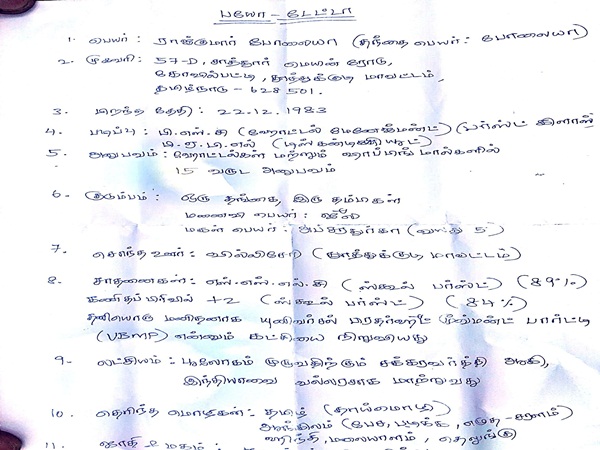 பயோ - டேட்டா
1. பெயர் : ராஜ்குமார் போலையா (தந்தை பெயர் : போலையா)
2. முகவரி : 57-D, சாத்தூர் மெயின் ரோடு,
கோவில்பட்டி, தூத்துக்குடி மாவட்டம்,
தமிழ்நாடு - 628 501.
3. பிறந்த தேதி : 22.12.1983
4. படிப்பு : பி.எஸ்.சி (ஹோட்டல் மேனேஜ்மெண்ட்) (பர்ஸ்ட் கிளாஸ்)
பி.ஜி.டி.எல் (டிஸ்கண்டினியூட்)
5. அனுபவம் : ஹோட்டல்கள் மற்றும் ஷாப்பிங் மால்களில்
15 வருட அனுபவம்
6. குடும்பம் : ஒரு தங்கை, இரு தம்பிகள்
மனைவி பெயர் :
மகள் பெயர் : (வயது 5)
7. சொந்த ஊர் : வில்லிசேரி (தூத்துக்குடி மாவட்டம்)
8. சாதனைகள் : எஸ்.எஸ்.எல்.சி (ஸ்கூல் பர்ஸ்ட்) (89%)
கணிதப்பிரிவில் +2 (ஸ்கூல் பர்ஸ்ட்) (84%)
தனியொரு மனிதனாக யுனிவர்சல் பிரதர்ஹுட் மூவ்மண்ட் பார்ட்டி
(VBMP) என்னும் கட்சியை நிறுவியது
9. லட்சியம் : பூலோகம் முழுவதிற்கும் சக்கரவர்த்தி ஆகி,
இந்தியாவை வல்லரசாக மாற்றுவது
10. தெரிந்த மொழிகள் : தமிழ் (தாய்மொழி)
ஆங்கிலம் (பேச, படிக்க, எழுத - சரளம்)
ஹிந்தி, மலையாளம், தெலுங்கு
11.